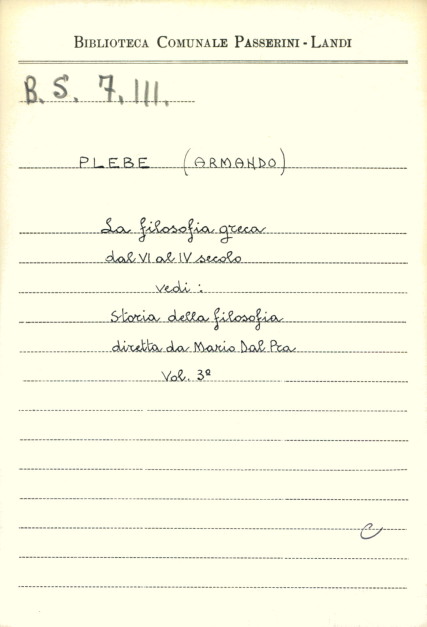 BIBLIOTECA COMUNALE PASSERINI - LANDI
B. S. 7. III.
PLEBE (ARMANDO)
La filosofia greca
dal VI al IV secolo
vedi :
Storia della filosofia
diretta da Mario Dal Pra
Vol. 3º
C